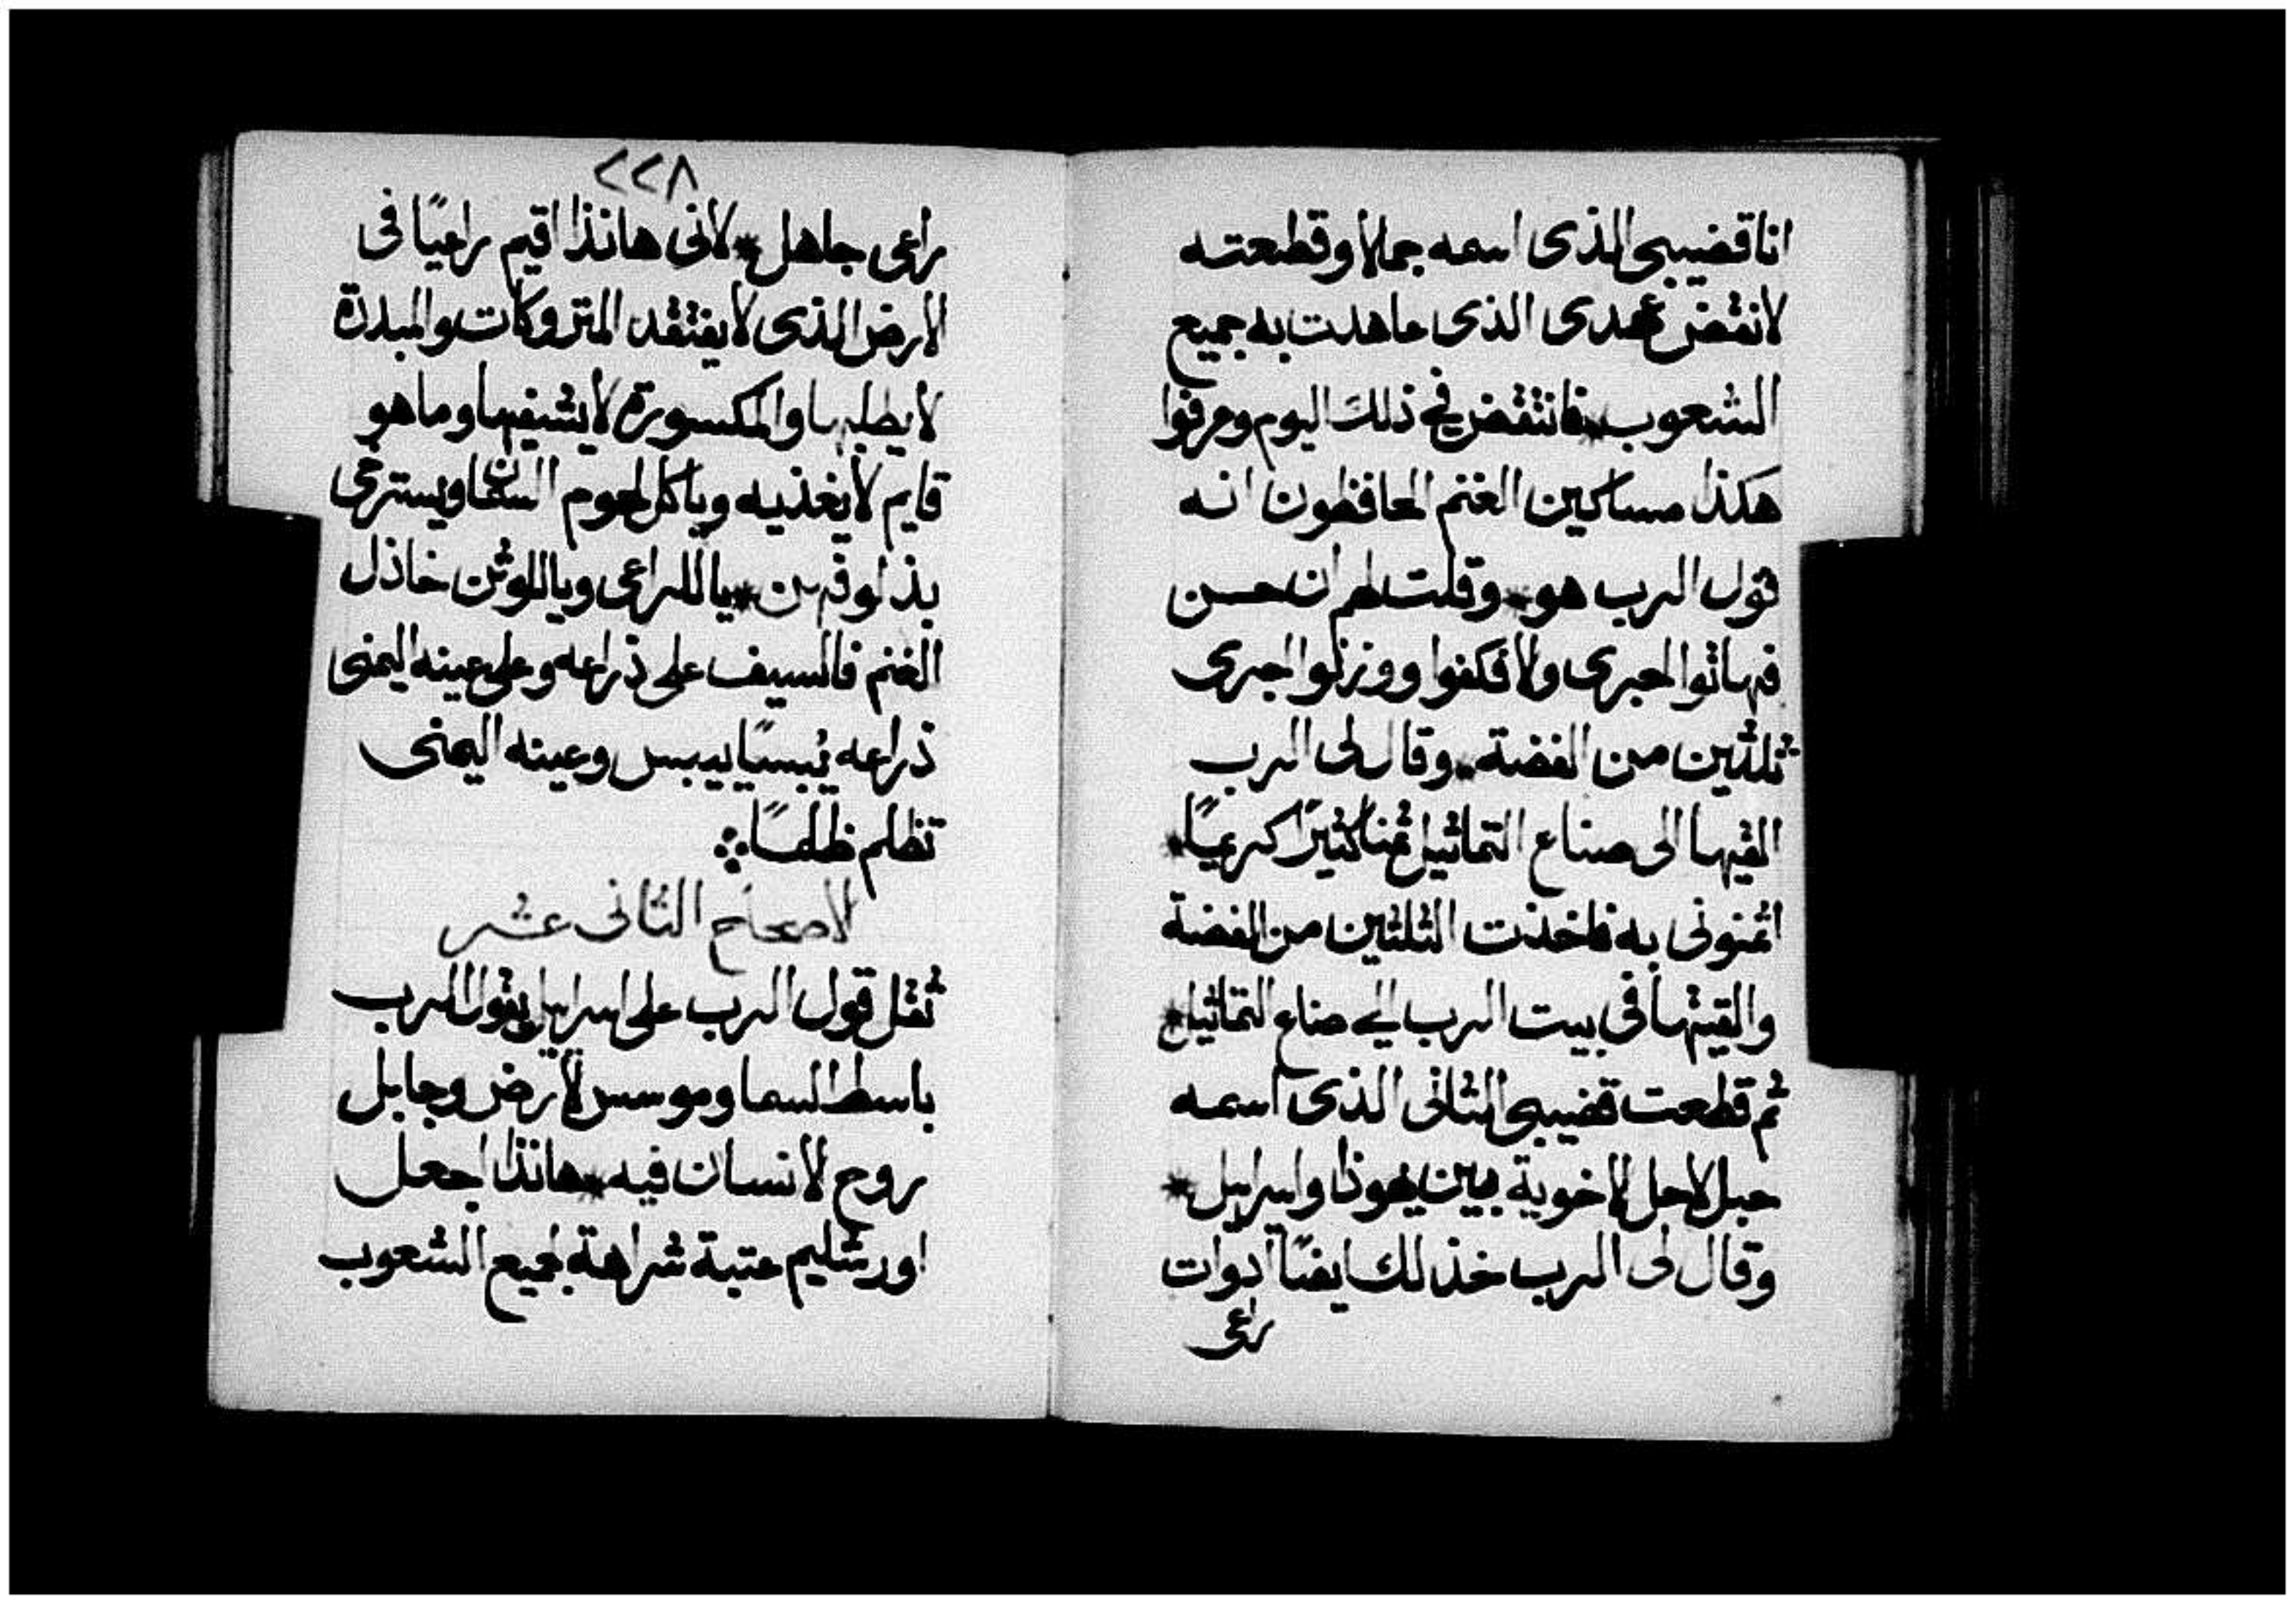 انا قضيبى الذى اسمه جمالا وقطعته
لانقض عهدى الذى عاهدت به جميع
الشعوب * فانتقض فى ذلك اليوم وعرفوا
هكذا مساكين الغنم الحافظون انه
قول الرب هو * وقلت لهم ان حسن
فهاتوا اجرى ولا فكفوا ووزنوا اجرى
ثلثين من الفضة * وقال لى الرب
القيها الى صناع التماثيل ثمنا كثيرًا كريمًا *
اثمنونى به فاخذت الثلثين من الفضة
والقيتها فى بيت الرب الى صناع التماثيل *
ثم قطعت قضيبى الثانى الذى اسمه
حبل لاجل الاخوية بين يهوذا واسراييل *
وقال لى الرب خذ لك ايضًا ادوات
راعى
٢٢٨
راعى جاهل * لانى هانذا اقيم راعيًا فى
الارض الذى لا يفتقد المتروكات والمبددة
لا يطلبها والمكسورة لا يشفيها وما هو
قايم لا يغذيه وياكل لحوم السمان ويسترخى
بذلوفهن * يا للراعى ويا للوثن خاذل
الغنم فالسيف على ذراعه وعلى عينه اليمنى
ذراعه يُبسًا ييبس وعينه اليمنى
تظلم ظلمًا
الاصحاح الثانى عشر
ثقل قول الرب على اسراييل يقول الرب
باسط السما وموسس الارض وجابل
روح الانسان فيه * هانذا اجعل
اورشليم عتبة شراهة لجميع الشعوب